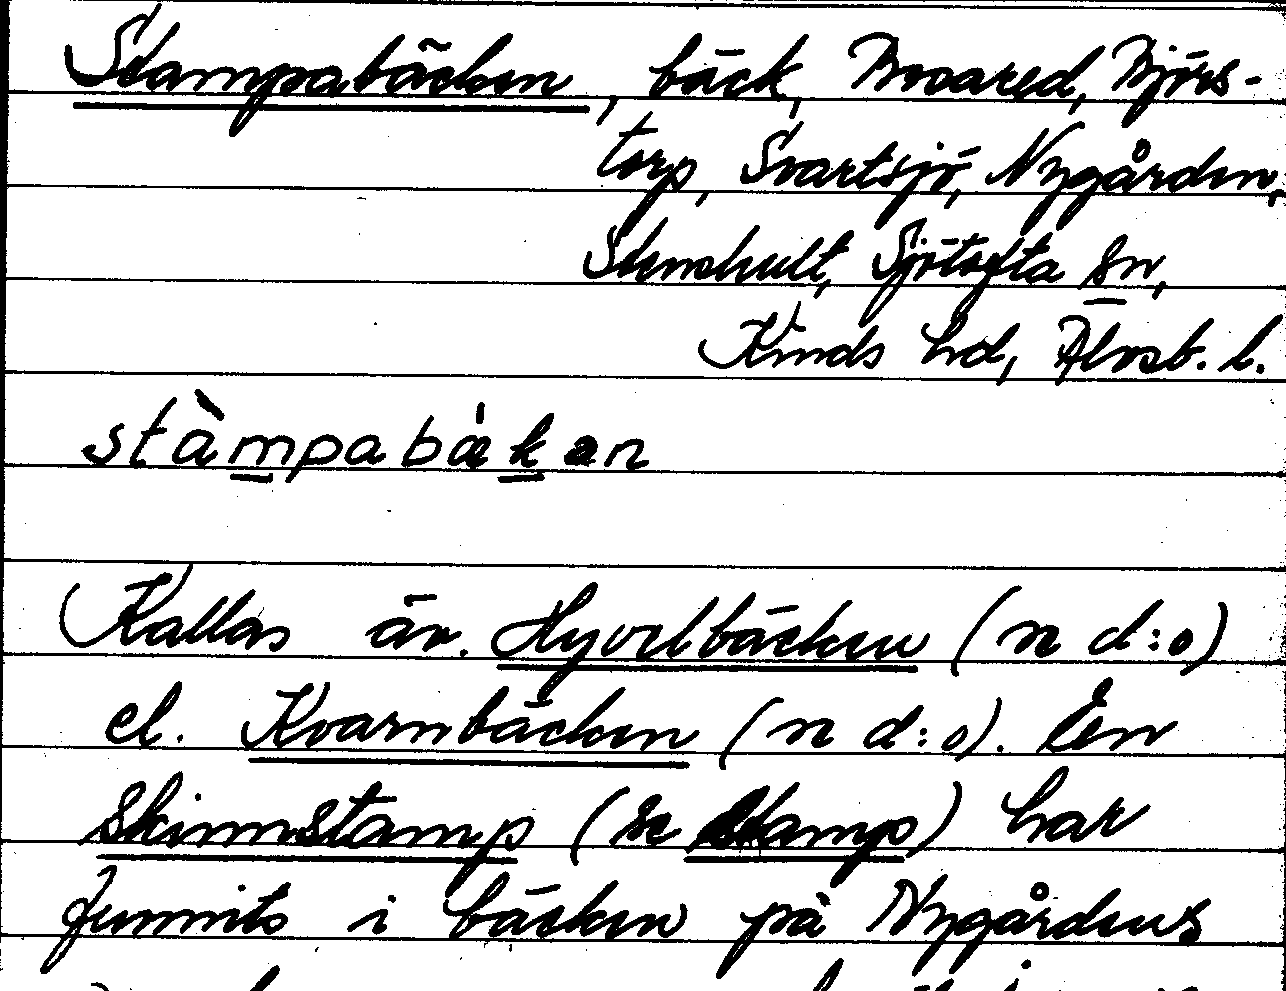 Stampabäcken, bäck, Broared, Björs-
torp, Svartsjö, Nygården,
Stenshult, Sjötofta sn,
Kinds hd, Älvsb. l.
stàmpabækan
Kallas äv. Hyvelbäcken (se d:o)
el. Kvarnbäcken (se d:o). En
skinnstamp (se stamp) har
funnits i bäcken på Nygårdens